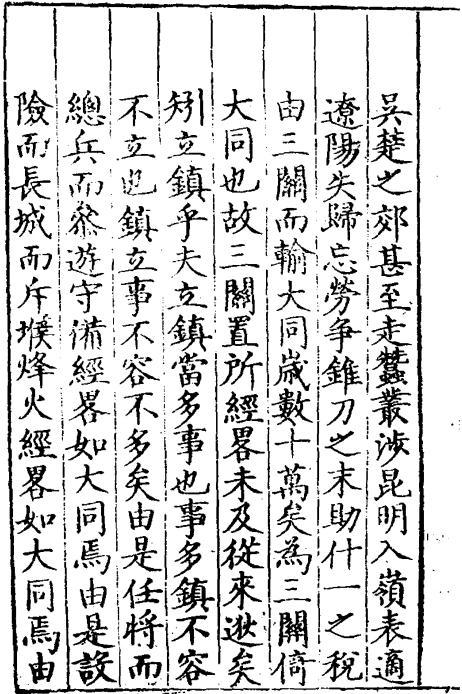 吳楚之郊甚至走蠶叢涉昆明入嶺表適
遼陽失歸忘勞爭錐刀之末助什一之稅
由三關而輸大同歲數十萬矣為三關僃
大同也故三關置所經畧未及從來逖矣
矧立鎮乎夫立鎮當多事也事多鎮不容
不立也鎮立事不容不多矣由是任將而
總兵而叅遊守備經畧如大同焉由是設
險而長城而斥堠烽火經畧如大同焉由